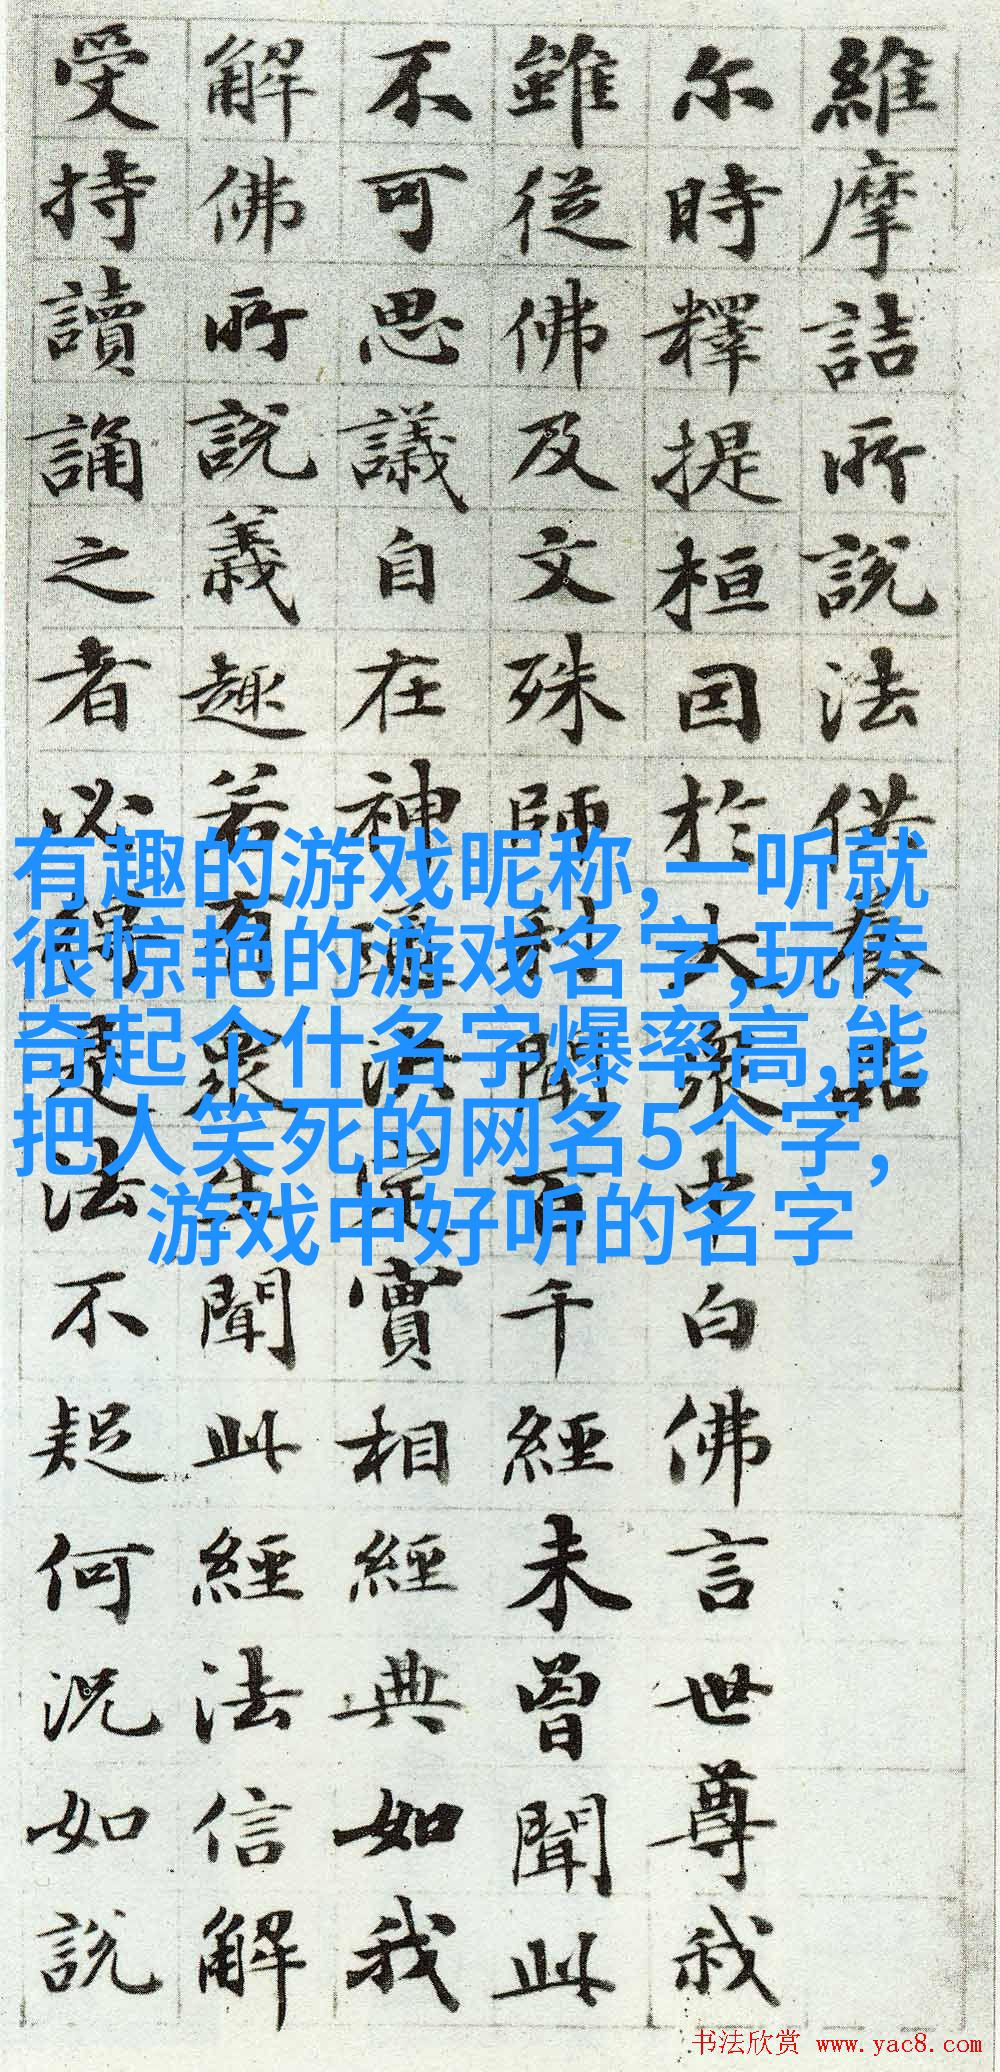 維摩詰所說法供養品
尔時釋提桓因於大衆中白佛言世尊我
雖從佛及文殊師利聞百千經未曾聞此
不可思議自在神通決定實相經典如我
解佛所說義趣若有衆生聞此經法信解
受持讀誦之者必得是法不疑何況如說
有趣的游戏昵称,一听就
很惊艳的游戏名字,玩传
奇起个什名字爆率高,能
把人笑死的网名5个字,
游戏中好听的名字
书法欣赏 www.yac8.com